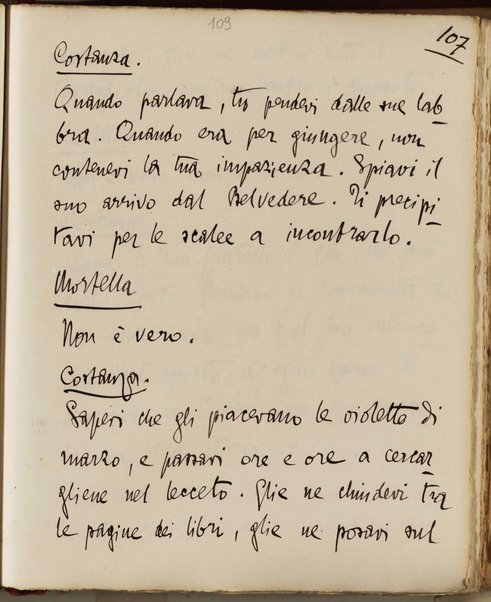 109
107
Costanza.
Quando parlava, tu pendevi dalle sue lab
bra. Quando era per giungere, non
contenevi la tua impazienza. Spiavi il
suo arrivo dal Belvedere. Ti precipi
tavi per le scalee a incontrarlo.
Mortella
Non è vero.
Costanza.
Sapevi che gli piacevano le violette di
marzo, e passavi ore e ore a cercar
gliene nel lecceto. Glie ne chiudevi tra
le pagine dei libri, glie ne posavi sul